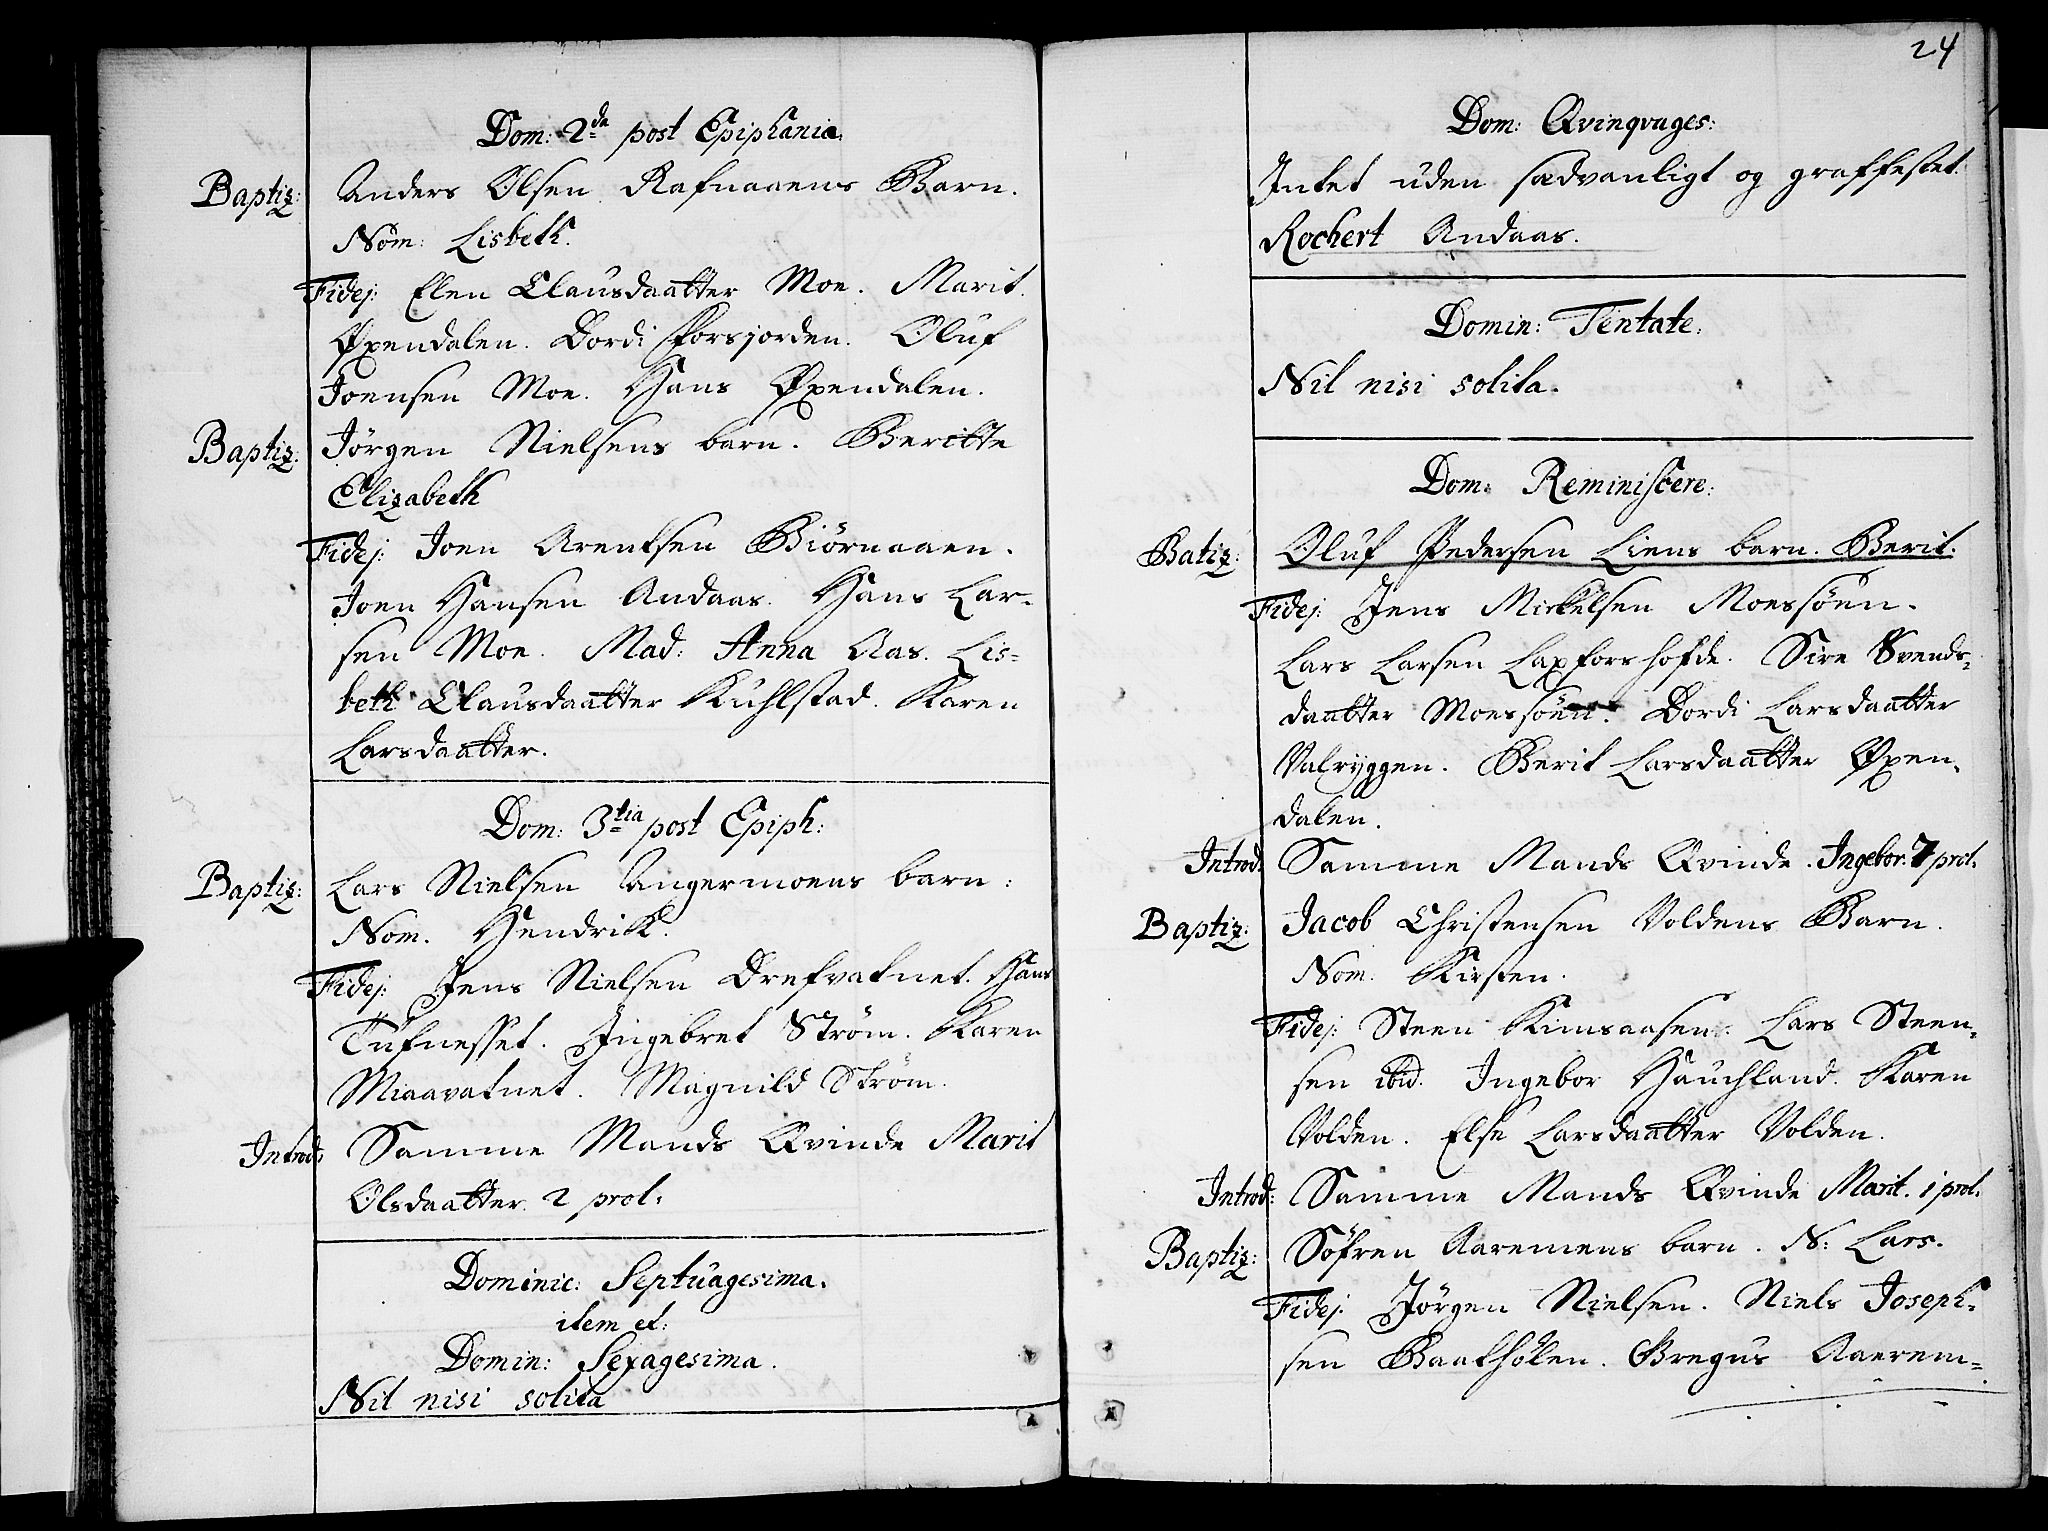 Dom: 2da post Epiphania.
Baptiz: Anders Olsen Rafnaaens Barn.
Nom: Lisbeth.
Fidej: Elen Clausdaatter Moe. Marit
Øxendalen. Dordi Forsjorden. Oluf
Joensen Moe. Hans Øxendalen.
Baptiz: Jörgen Nielsens barn. Beritte
Elizabeth
Fidej: Joen Arentsen Biörnaaen.
Joen Hansen Andaas. Hans Lar-
sen Moe. Mad: Anna Aas. Lis-
beth Clausdaatter Kuhlstad. Karen
Larsdaatter.
Dom: 3tia post Epiph:
Baptiz: Lars Nielsen Angermoens barn:
Nom. Hendrik.
Fidej: Jens Nielsen Drefvatnet. Hans
Tüfnesset. Jngebret Ström. Karen
Miaavatnet. Magnild Ström.
Introd: Samme Mands Qvinde Marit
Olsdaatter. 2 prol.
Dominic: Septuagesima.
item et:
Domin: Sexagesima.
Nil nisi solita
24
Dom: Qvinqvages:
Intet uden sædvanligt og graffestet.
Rochert Andaas.
Domin: Tentate.
Nil nisi solita.
Dom: Reminiscere:
Batiz: Oluf Pedersen Liens barn. Berit.
Fidej: Jens Mickelsen Moessöen.
Lars Larsen Laxforshofde. Sire Svends-
daatter Moessöen. Dordi Larsdaatter
Valryggen. Berit Larsdaatter Øxen-
dalen.
Introd: Samme Mands Qvinde. Ingebor. 7 prol.
Baptiz: Jacob Christensen Voldens Barn.
Nom: Kirsten.
Fidej: Steen Kimsaasen. Lars Steen-
sen ibid. Ingebor Hauchland. Karen
Volden. Else Larsdaatter Volden.
Introd: Samme Mands Qvinde Marit. 1 prol.
Baptiz: Söfren Aaremens barn. N: Lars.
Fidej: Jörgen Nielsen. Niels Joseph-
sen Baathölen. Gregus Aaerem-